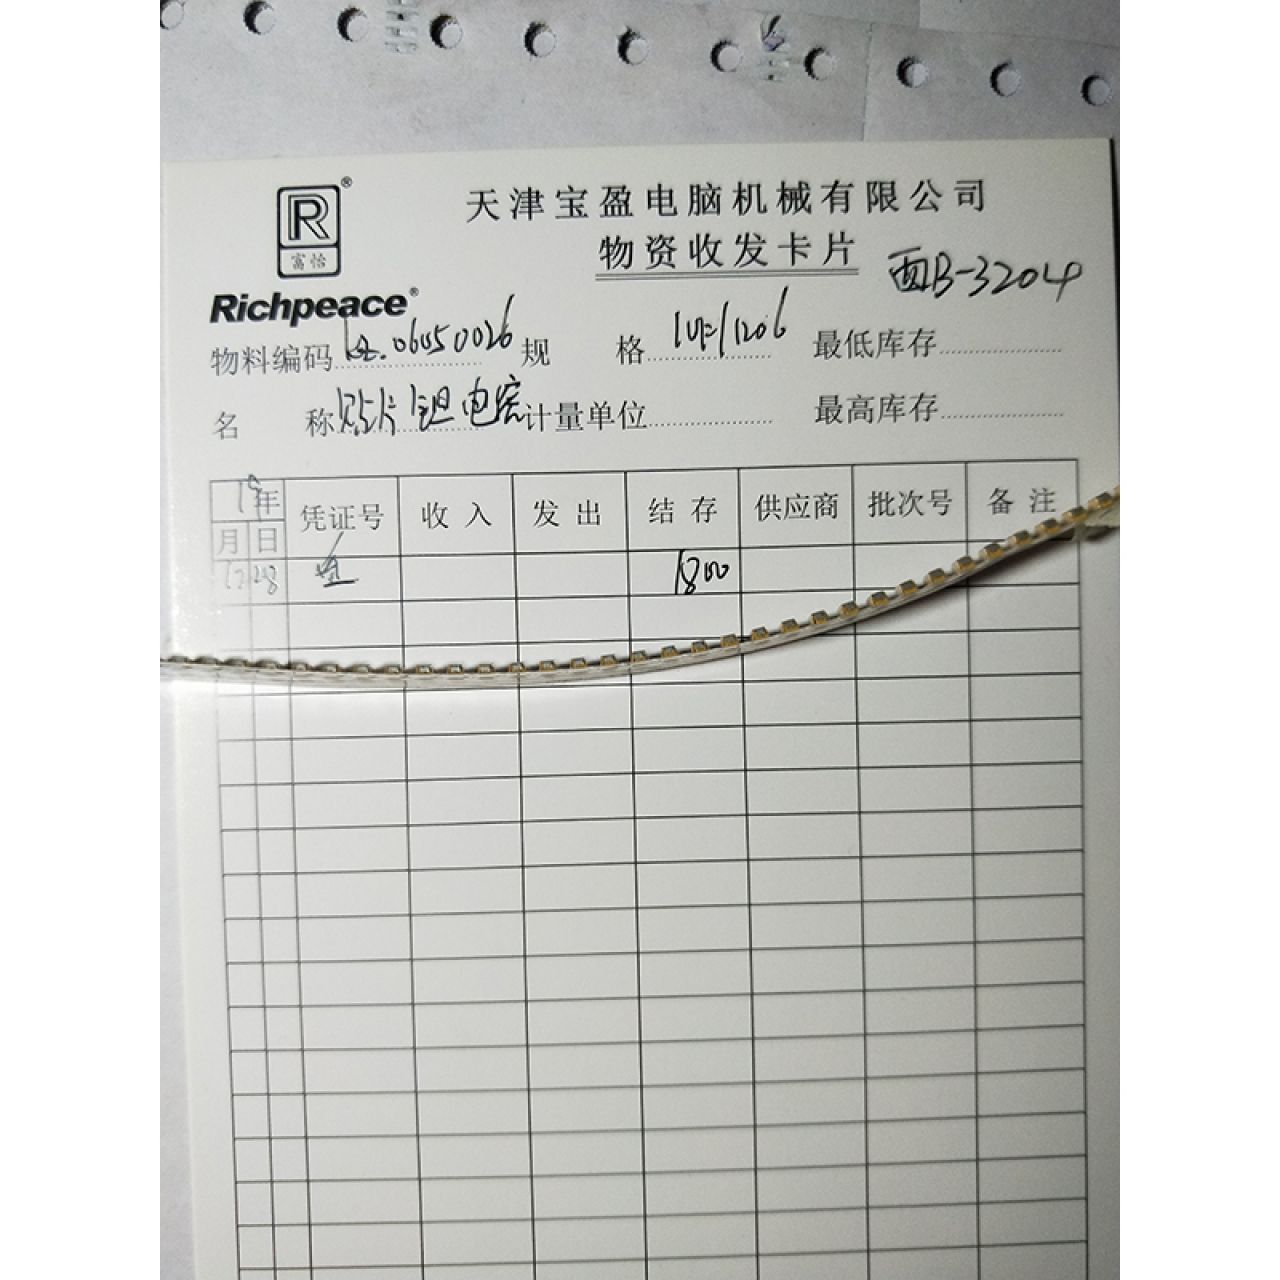 R®
富怡
Richpeace®
天津宝盈电脑机械有限公司
物资收发卡片
西B-3204
物料编码 06450026 规格 1UF/1206 最低库存
名称 贴片钽电容 计量单位 最高库存
19年 凭证号 收入 发出 结存 供应商 批次号 备注
月 日
12 28 1800